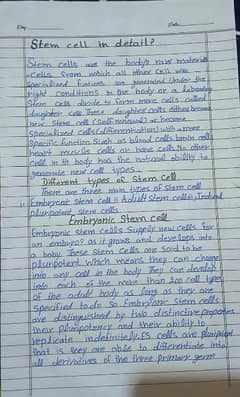 Day
Date
Stem cell in detail?
Stem cells are the body's raw materials
-Cells from which all other cell with
specialized function are generated Under the
right conditions in the body or a laboratory
Stem cells divide to form more cells called
daughter cells These daughter cells either become
new Stem cells (self-renewal) or become
specialized cells (differentiation) with a more
specific function Such as blood cells brain cells
heart muscle cells or bone cells No other
cell in th body has the natural ability to
generate new cell types.
Different types of Stem cell
There are three main types of stem cell
Embryonic stem cell = Adult stem cells, Induced
pluripotent stem cells.
Embryonic Stem cell
Embryonic stem cells Supply new cells for
an embryo? as it grows and develops into
a baby. These Stem cells are said to be
pluripotent which means they can change
into any cell in the body They can develop
into each of the more than 200 cell types
of the adult body as long as they are
specified to do so Embryonic Stem cells
are distinguished by two distinctive properties
their pluripotency and their ability to
replicate indefinitely. ES cells are pluripotent
that is they are able to differentiate into
all derivatives of the three primary germ